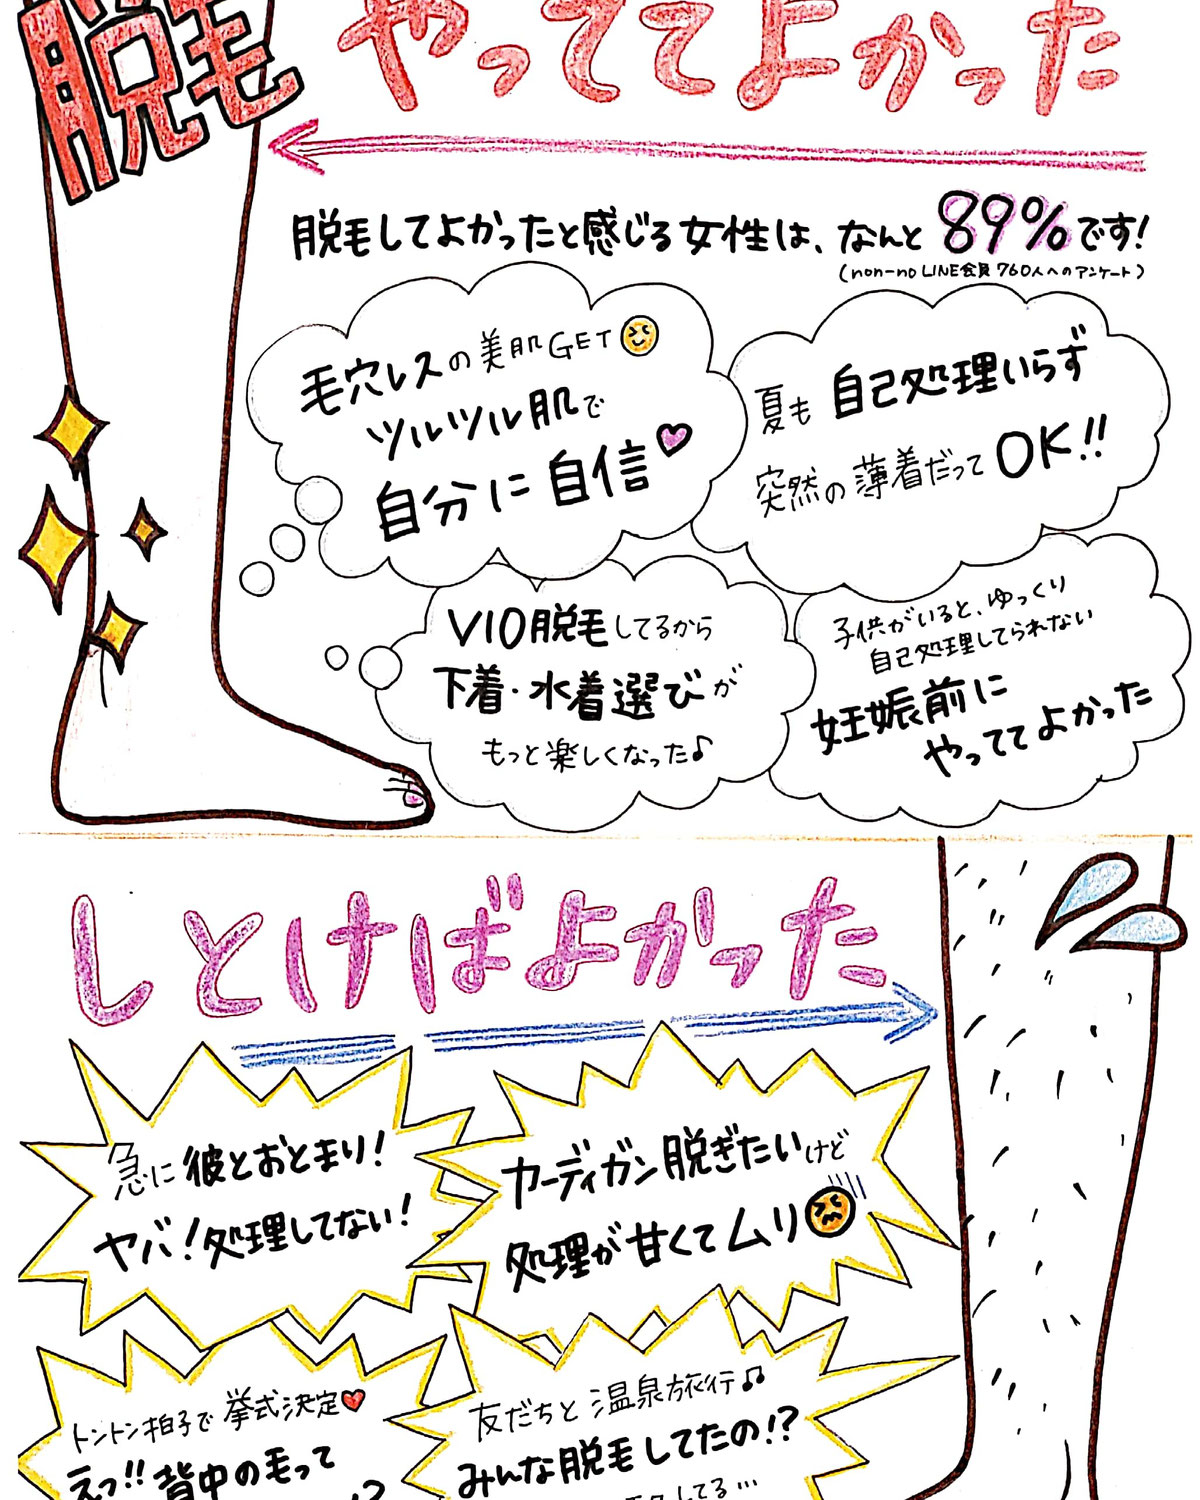 脱毛
やっててよかった
脱毛してよかったと感じる女性は、なんと89%です!
(non-no LINE会員 760人へのアンケート)
毛穴レスの美肌GET
ツルツル肌で
自分に自信
夏も自己処理いらず
突然の薄着だってOK!!
VIO脱毛してるから
下着・水着選びが
もっと楽しくなった♪
子供がいると、ゆっくり
自己処理してられない
妊娠前に
やっててよかった
しとけばよかった
急に彼とおとまり!
ヤバ!処理してない!
カーディガン脱ぎたいけど
処理が甘くてムリ
トントン拍子で挙式決定
えっ!!背中の毛って
友だちと温泉旅行♫
みんな脱毛してたの!?
してる…